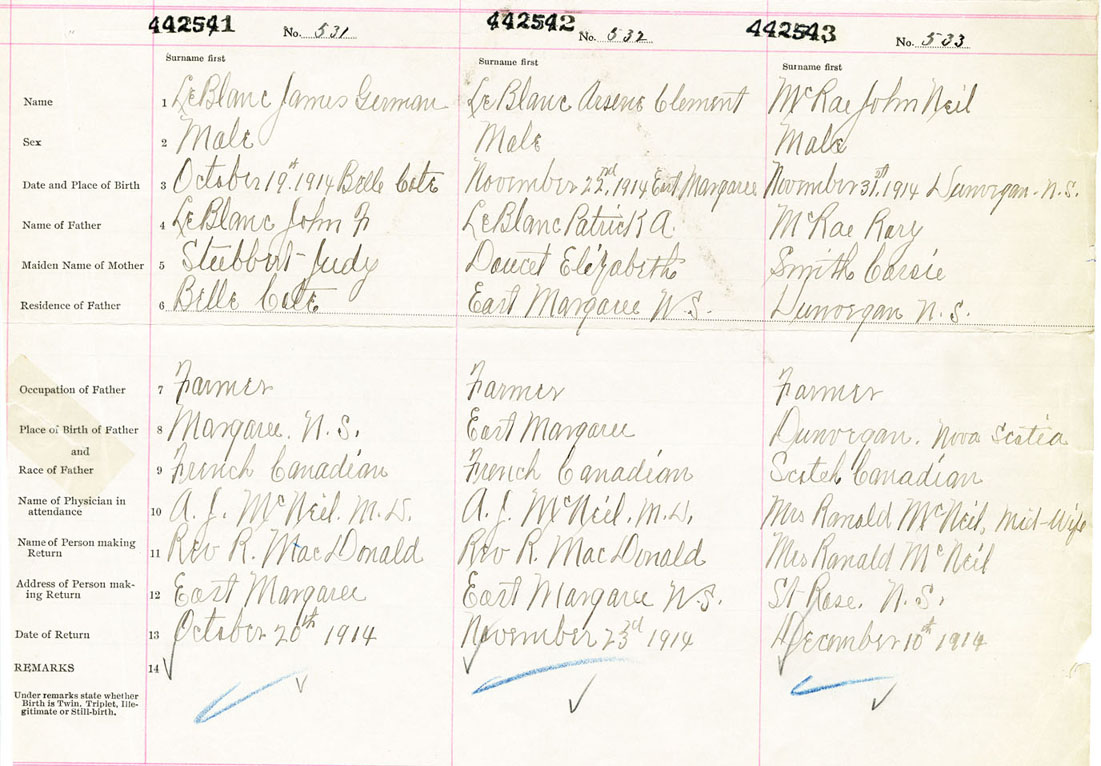 442541 No. 531 442542 No. 532 442543 No. 533
Surname first Surname first Surname first
Name 1 LeBlanc James German LeBlanc Arsene Clement McRae John Neil
Sex 2 Male Male Male
Date and Place of Birth 3 October 19st. 1914 Belle Cote November 22nd, 1914 East Margaree November 31st. 1914 Dunvegan. N.S.
Name of Father 4 LeBlanc John F LeBlanc Patrick A. McRae Rory
Maiden Name of Mother 5 Stubbert Judy Doucet Elizabeth Smith Cassie
Residence of Father 6 Belle Cote East Margaree N.S. Dunvegan N.S.
Occupation of Father 7 Farmer Farmer Farmer
Place of Birth of Father 8 Margaree. N.S. East Margaree Dunvegan. Nova Scotia
and
Race of Father 9 French Canadian French Canadian Scotch Canadian
Name of Physician in
attendance 10 A. J. McNeil. M.D. A. J. McNeil. M.D. Mrs Ranald McNeil, Mid-Wife
Name of Person making
Return 11 Rev R. MacDonald Rev R. MacDonald Mrs Ranald McNeil
Address of Person mak-
ing Return 12 East Margaree East Margaree N.S. St Rose. N.S.
Date of Return 13 October 20th 1914 November 23rd 1914 December 10th 1914
REMARKS 14
Under remarks state whether
Birth is Twin, Triplet, Ille-
gitimate or Still-birth.